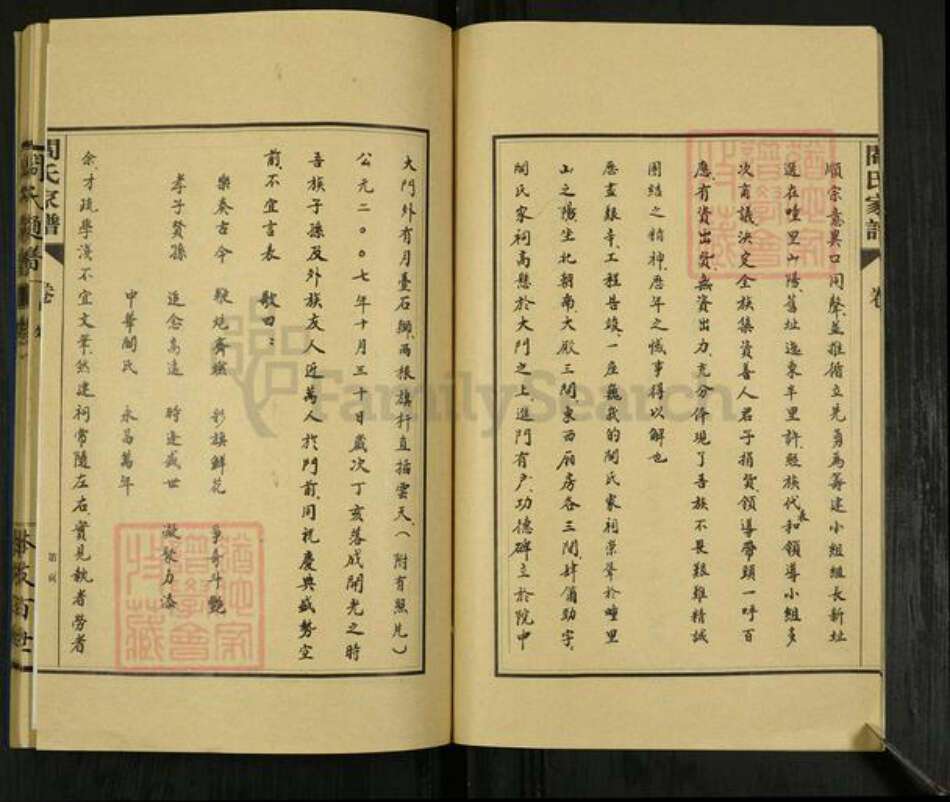 順宗意異口同聲並推循立先為籌建小組組長新址
選在疃里山陽舊址逸東半里許經族代表和領導小組多
次商議決定全族集資善人君子捐資領導帶頭一呼百
應有資出資無資出力充分体現了吾族不畏艱難精誠
團結之精神歷年之憾事得以解也
歷盡艱辛工程告竣一座巍峩的閆氏家祠崇聳於疃里
山之陽坐北朝南大殿三間東西廂房各三間肆個劲字
閆氏家祠高懸於大門之上進門有户功德碑立於院中
大門外有月臺石獅兩根旗杆直插雲天（附有照片）
公元二〇〇七年十月三十日歲次丁亥落成開光之時
吾族子孫及外族友人近萬人於門前同祝慶典盛勢空
前不宜言表 歌曰：
樂奏古今 鞭炮齊 彩旗鮮花 爭奇斗艷
孝子賢孫 追念高遠 時逢盛世 凝聚力添
中華閆氏 永昌萬年
余才疏學淺不宜文筆然建祠常隨左右實見執者勞者
閆氏家譜 卷
閆氏家譜 卷
FamilySearch